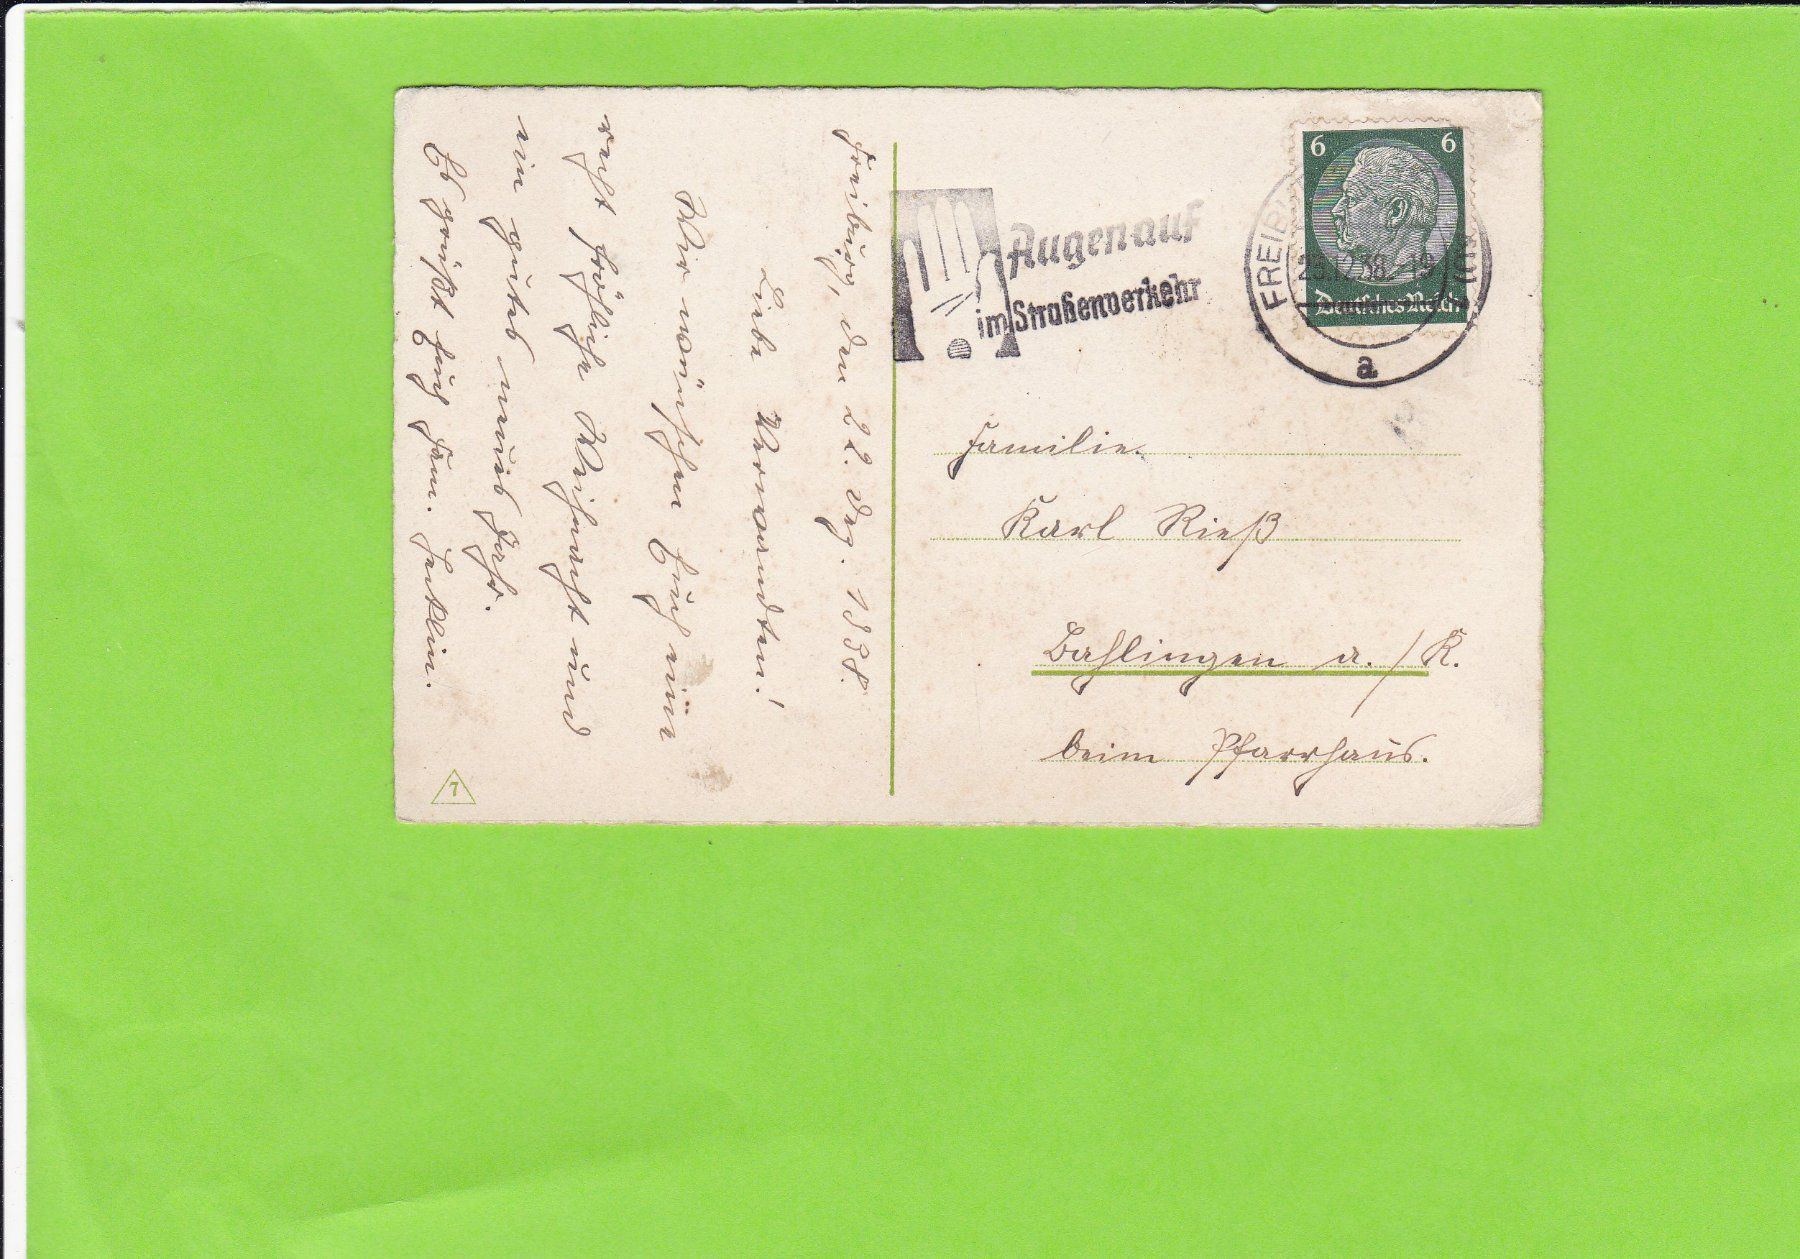 Freiburg, den 22. Dez. 1938.
Liebe Verwandten!
Wir wünschen Euch nun
recht fröhliche Weihnacht und
ein gutes neues Jahr.
Es grüßt Euch Fam.
Augen auf
im Straßenverkehr
6 6
FREIBU
23.12.38 19
Deutsches Reich
a
Familie
Karl Rieß
Bahlingen a./K.
beim Pfarrhaus.
7